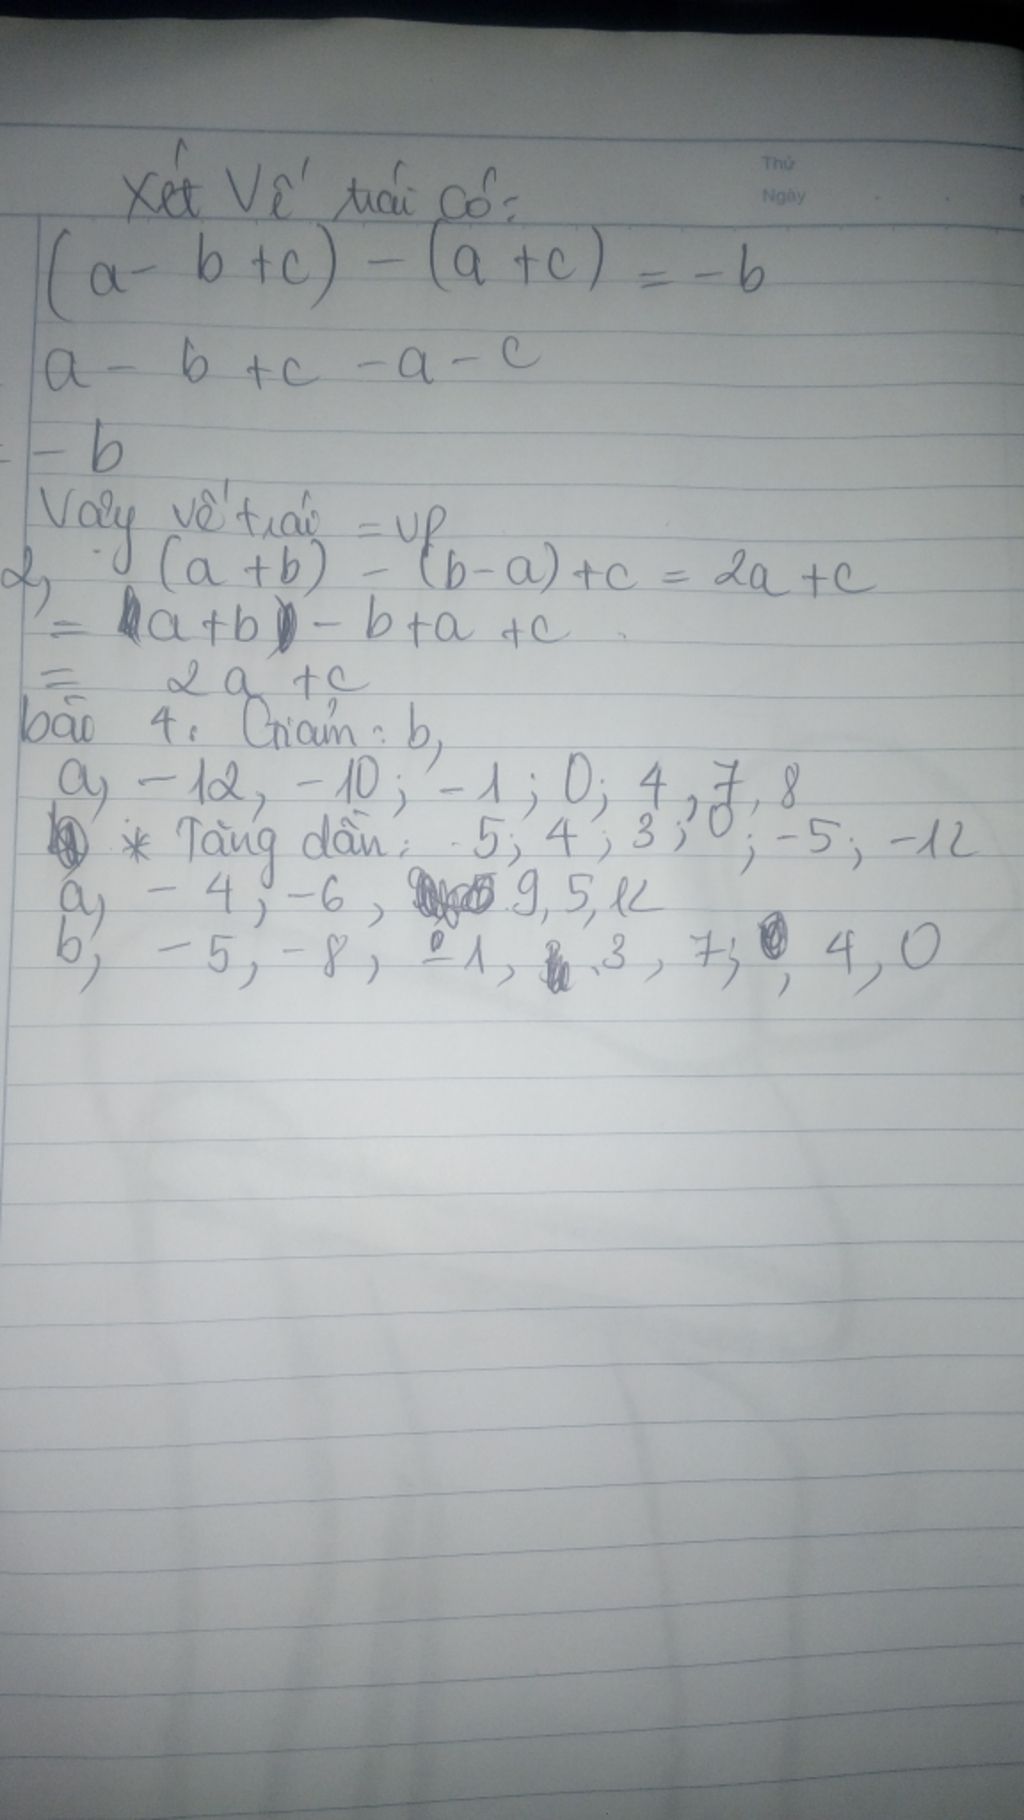 Thứ
Ngày
Xét Vế trái có:
(a - b + c) - (a + c) = - b
a - b + c - a - c
= - b
Vậy vế trái = VP
2, (a + b) - (b - a) + c = 2a + c
= a + b - b + a + c
= 2a + c
bài 4: Giảm: b,
a, - 12, - 10; - 1; 0; 4, 7, 8
* Tăng dần: 5; 4; 3; 0; -5; -12
a, - 4; -6, 9, 5, 12
b, - 5, - 8, - 1, 3, 7; , 4, 0